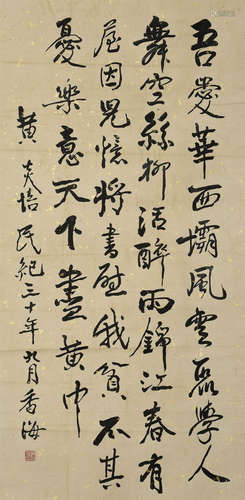 吾愛華西壩風雲聚學人
舞空絲柳活醉雨錦江春有
屋因兒憶將書慰我貧不其
憂樂意天下盡黃巾
黃炎培民紀三十年九月香海